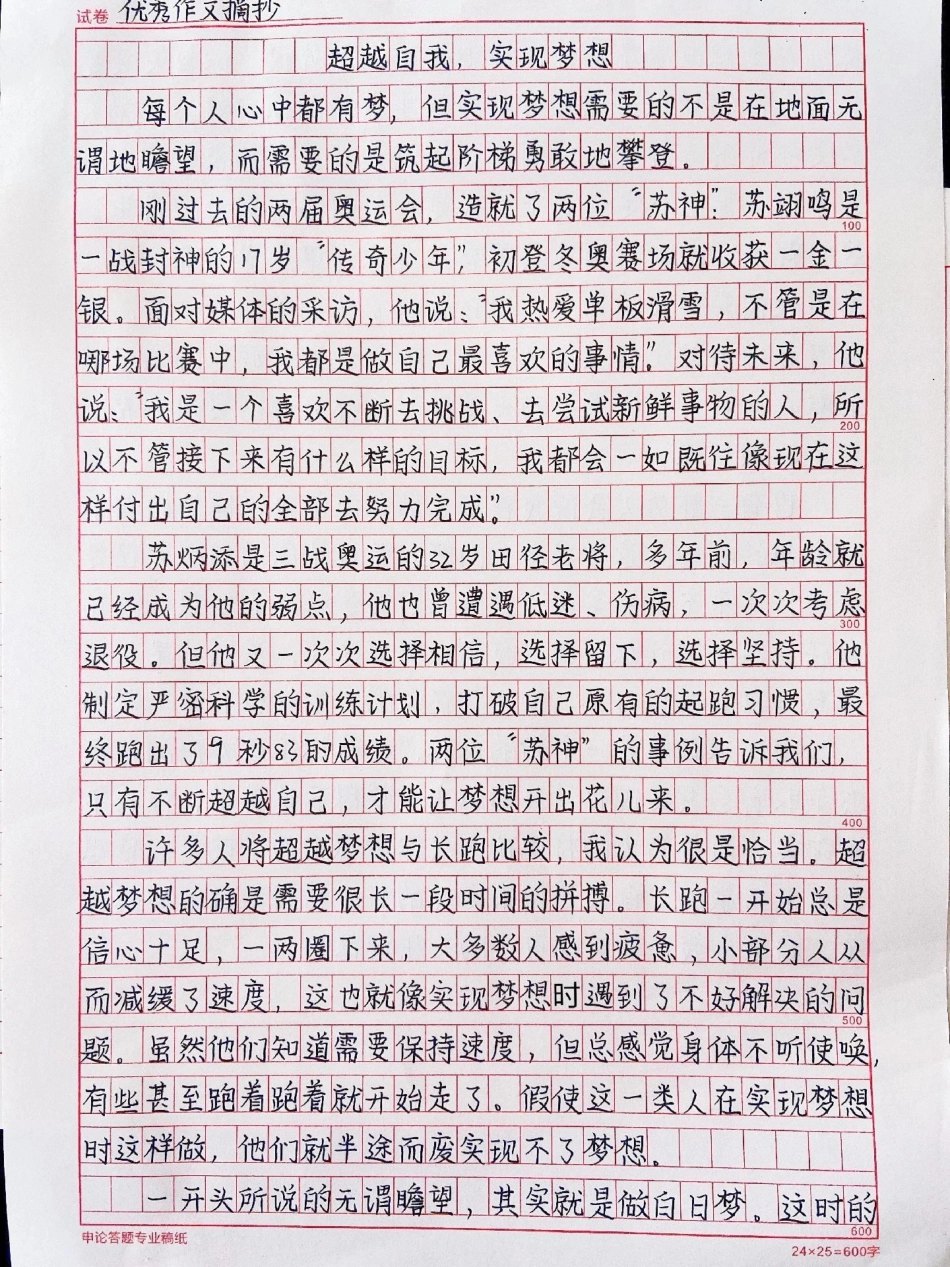 试卷 优秀作文摘抄
超越自我，实现梦想
每个人心中都有梦，但实现梦想需要的不是在地面无
谓地瞻望，而需要的是筑起阶梯勇敢地攀登。
刚过去的两届奥运会，造就了两位“苏神”：苏翊鸣是
100
一战封神的17岁“传奇少年”，初登冬奥赛场就收获一金一
银。面对媒体的采访，他说：“我热爱单板滑雪，不管是在
哪场比赛中，我都是做自己最喜欢的事情”。对待未来，他
说：“我是一个喜欢不断去挑战、去尝试新鲜事物的人，所
200
以不管接下来有什么样的目标，我都会一如既往像现在这
样付出自己的全部去努力完成”。
苏炳添是三战奥运的32岁田径老将，多年前，年龄就
已经成为他的弱点，他也曾遭遇低迷、伤病，一次次考虑
300
退役。但他又一次次选择相信，选择留下，选择坚持。他
制定严密科学的训练计划，打破自己原有的起跑习惯，最
终跑出了9秒83的成绩。两位“苏神”的事例告诉我们，
只有不断超越自己，才能让梦想开出花儿来。
400
许多人将超越梦想与长跑比较，我认为很是恰当。超
越梦想的确是需要很长一段时间的拼搏。长跑一开始总是
信心十足，一两圈下来，大多数人感到疲惫，小部分人从
而减缓了速度，这也就像实现梦想时遇到了不好解决的问
500
题。虽然他们知道需要保持速度，但总感觉身体不听使唤，
有些甚至跑着跑着就开始走了。假使这一类人在实现梦想
时这样做，他们就半途而废实现不了梦想。
一开头所说的无谓瞻望，其实就是做白日梦。这时的
600
申论答题专业稿纸
24×25=600字